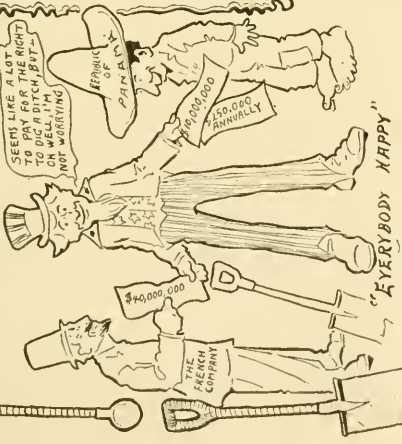 SEEMS LIKE A LOT
TO PAY FOR THE RIGHT
TO DIG A DITCH, BUT—
OH WELL, I'M
NOT WORRYING
REPUBLIC
OF
PANAMA
$10,000,000
$250,000
ANNUALLY
$40,000,000
THE
FRENCH
COMPANY
"EVERYBODY HAPPY"